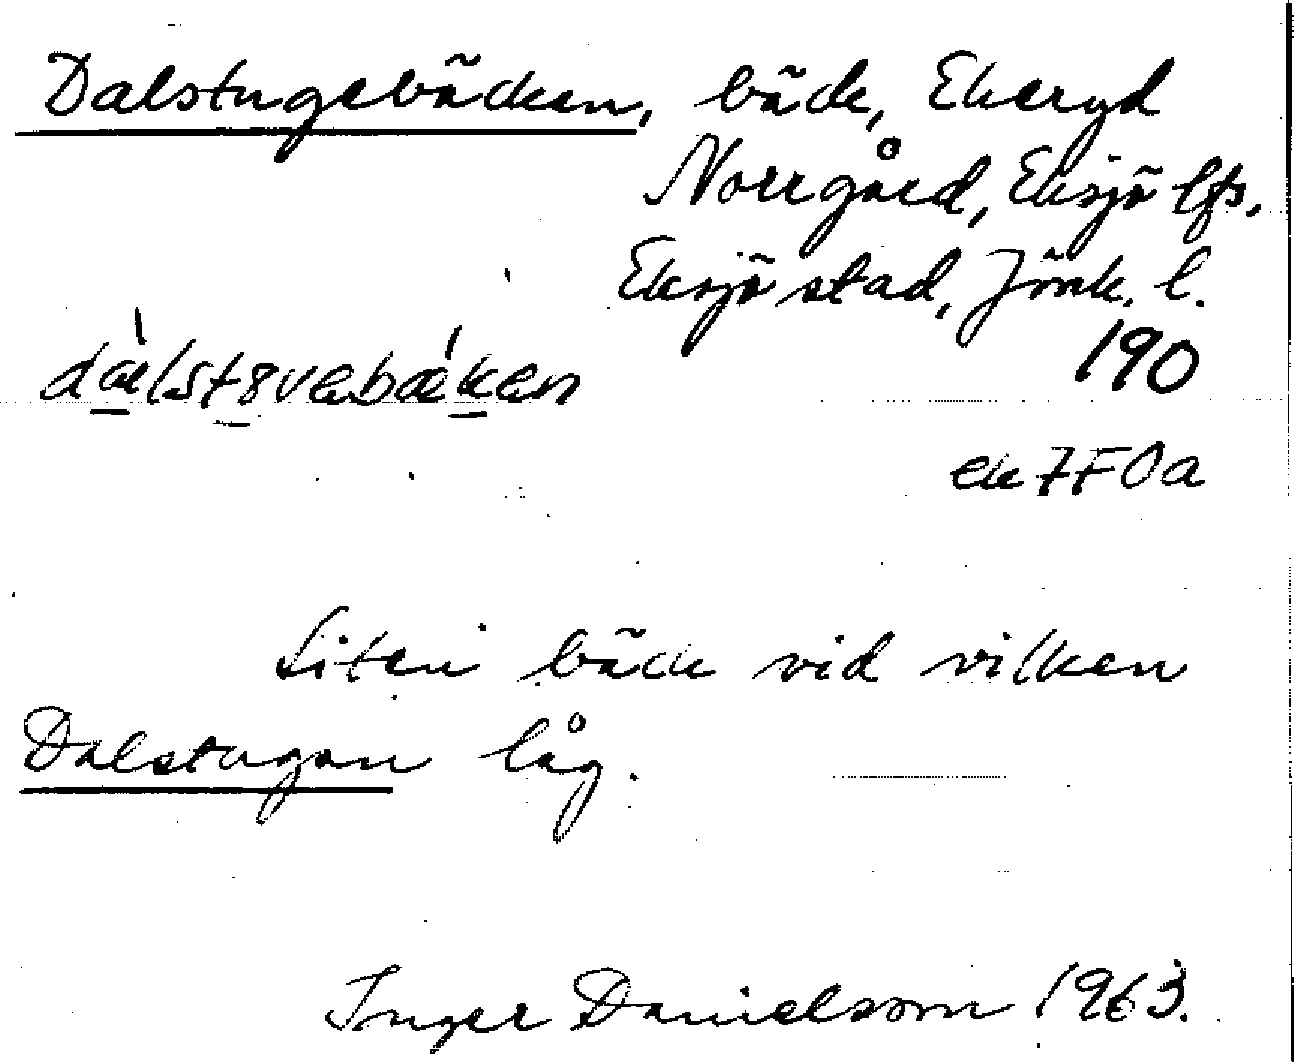 Dalstugebäcken, bäck, Ekeryd
Norrgård, Eksjö lfs.
Eksjö stad, Jönk. l.
190
ek 7F0a
Liten bäck vid vilken
Dalstugan låg.
Inger Danielsson 1963.